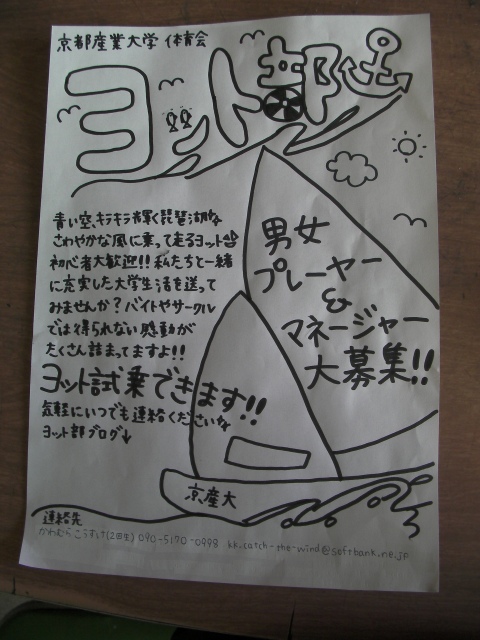 京都産業大学 体育会
ヨット部
青い空、キラキラ輝く琵琶湖を
さわやかな風に乗って走るヨット
初心者大歓迎!! 私たちと一緒
に充実した大学生活を送って
みませんか?バイトやサークル
では得られない感動が
たくさん詰まってますよ!!
ヨット試乗できます!!
気軽にいつでも連絡くださいな
ヨット部ブログ↓
男女
プレーヤー
&
マネージャー
大募集!!
京産大
連絡先
かわむら こうすけ(2回生) 090-5170-0998 kk.catch-the-wind@softbank.ne.jp